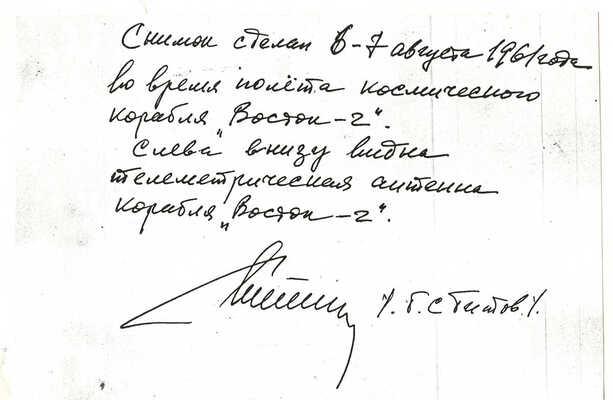 Снимок сделан 6-7 августа 1961 года
во время полёта космического
корабля „Восток-2“.
Слева внизу видна
телеметрическая антенна
корабля „Восток-2“.
Г. С Титов